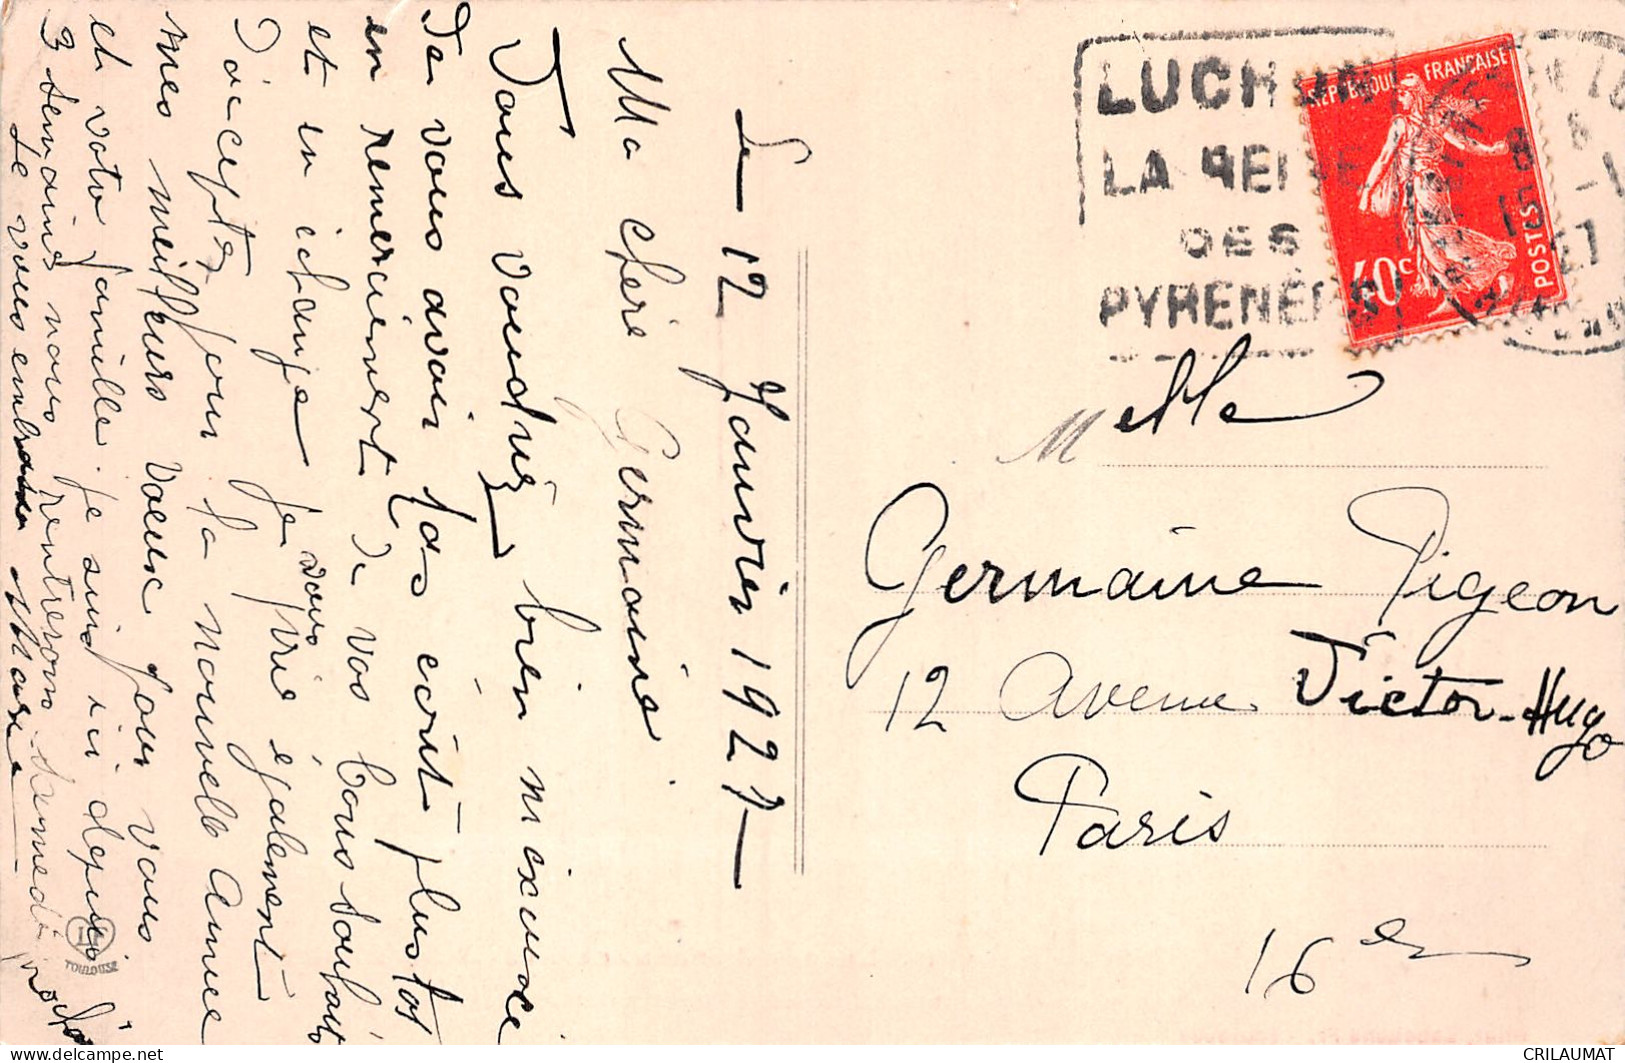 Le 12 Janvier 1927
Ma chère Germaine
Vous voudrez bien m'excuser
de vous avoir pas écrit plus tôt
en remerciement de vos bons souhaits
et en échange je vous prie également
d'accepter pour la nouvelle Année
mes meilleurs voeux pour vous
et votre famille. je suis ici depuis
3 semaines nous rentrerons samedi
Je vous embrasse Marie
LUCHON
LA REINE
DES
PYRÉNÉES
REPUBLIQUE FRANÇAISE
POSTES
40c
Melle
Germaine Pigeon
12 Avenue Victor-Hugo
Paris
16er
TOULOUSE
CRILAUMAT